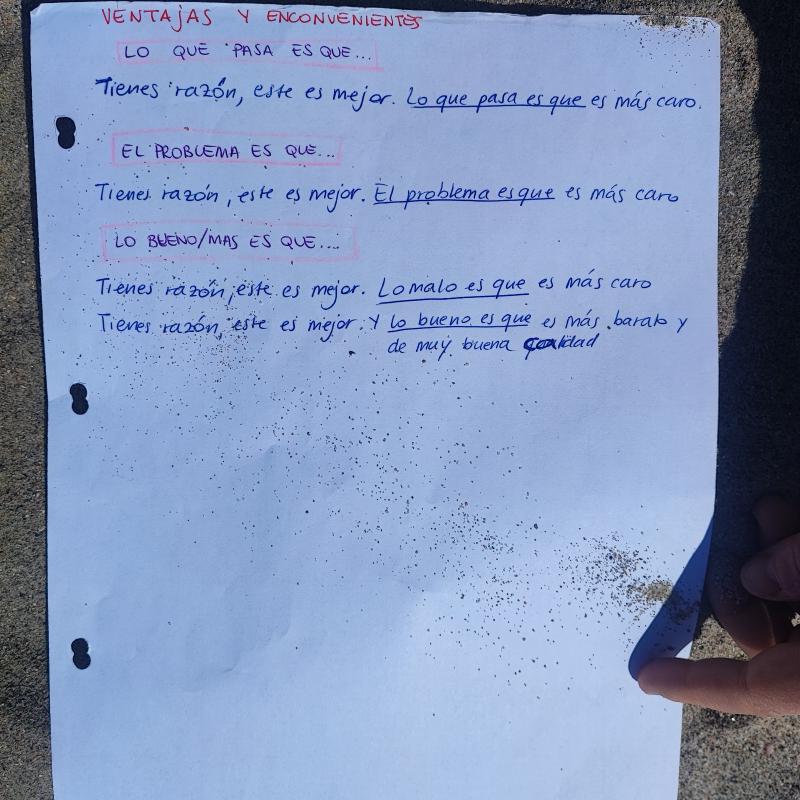 VENTAJAS Y ENCONVENIENTES
LO QUE PASA ES QUE...
Tienes razón, este es mejor. Lo que pasa es que es más caro.
EL PROBLEMA ES QUE...
Tienes razón, este es mejor. El problema es que es más caro
LO BUENO/MAS ES QUE....
Tienes razón, este es mejor. Lo malo es que es más caro
Tienes razón, este es mejor. Y lo bueno es que es más barato y
de muy buena calidad